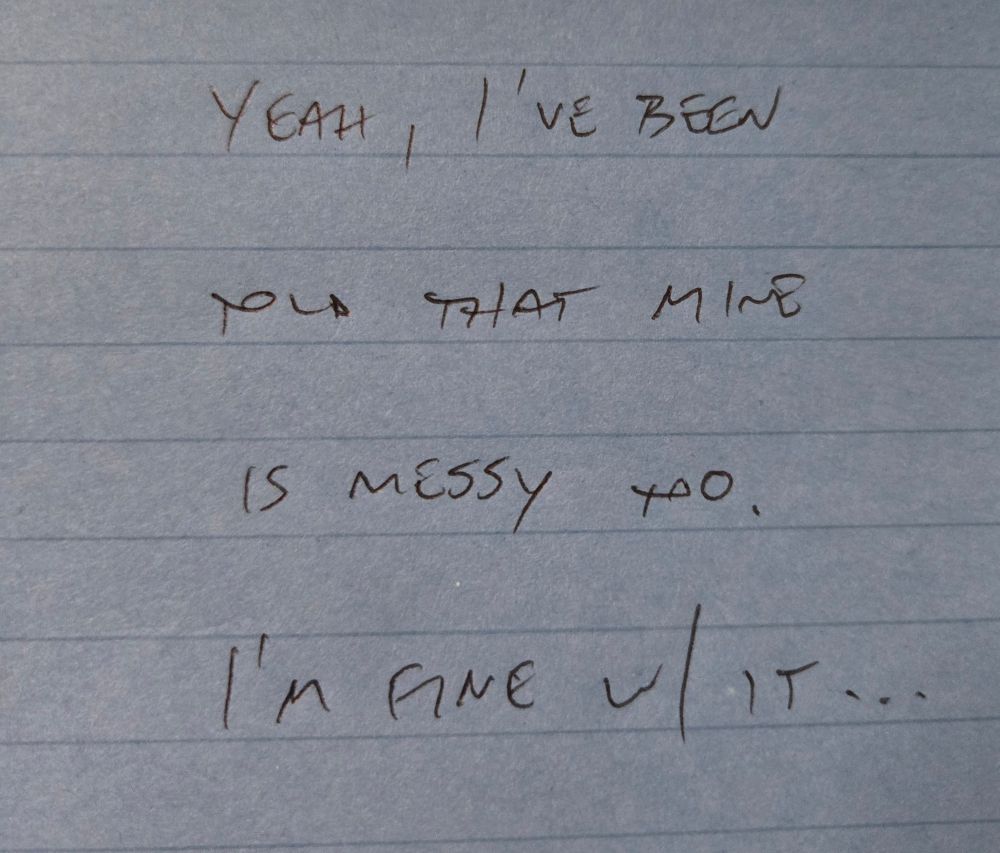 YEAH, I'VE BEEN
TOLD THAT MINE
IS MESSY TOO.
I'M FINE W/ IT...